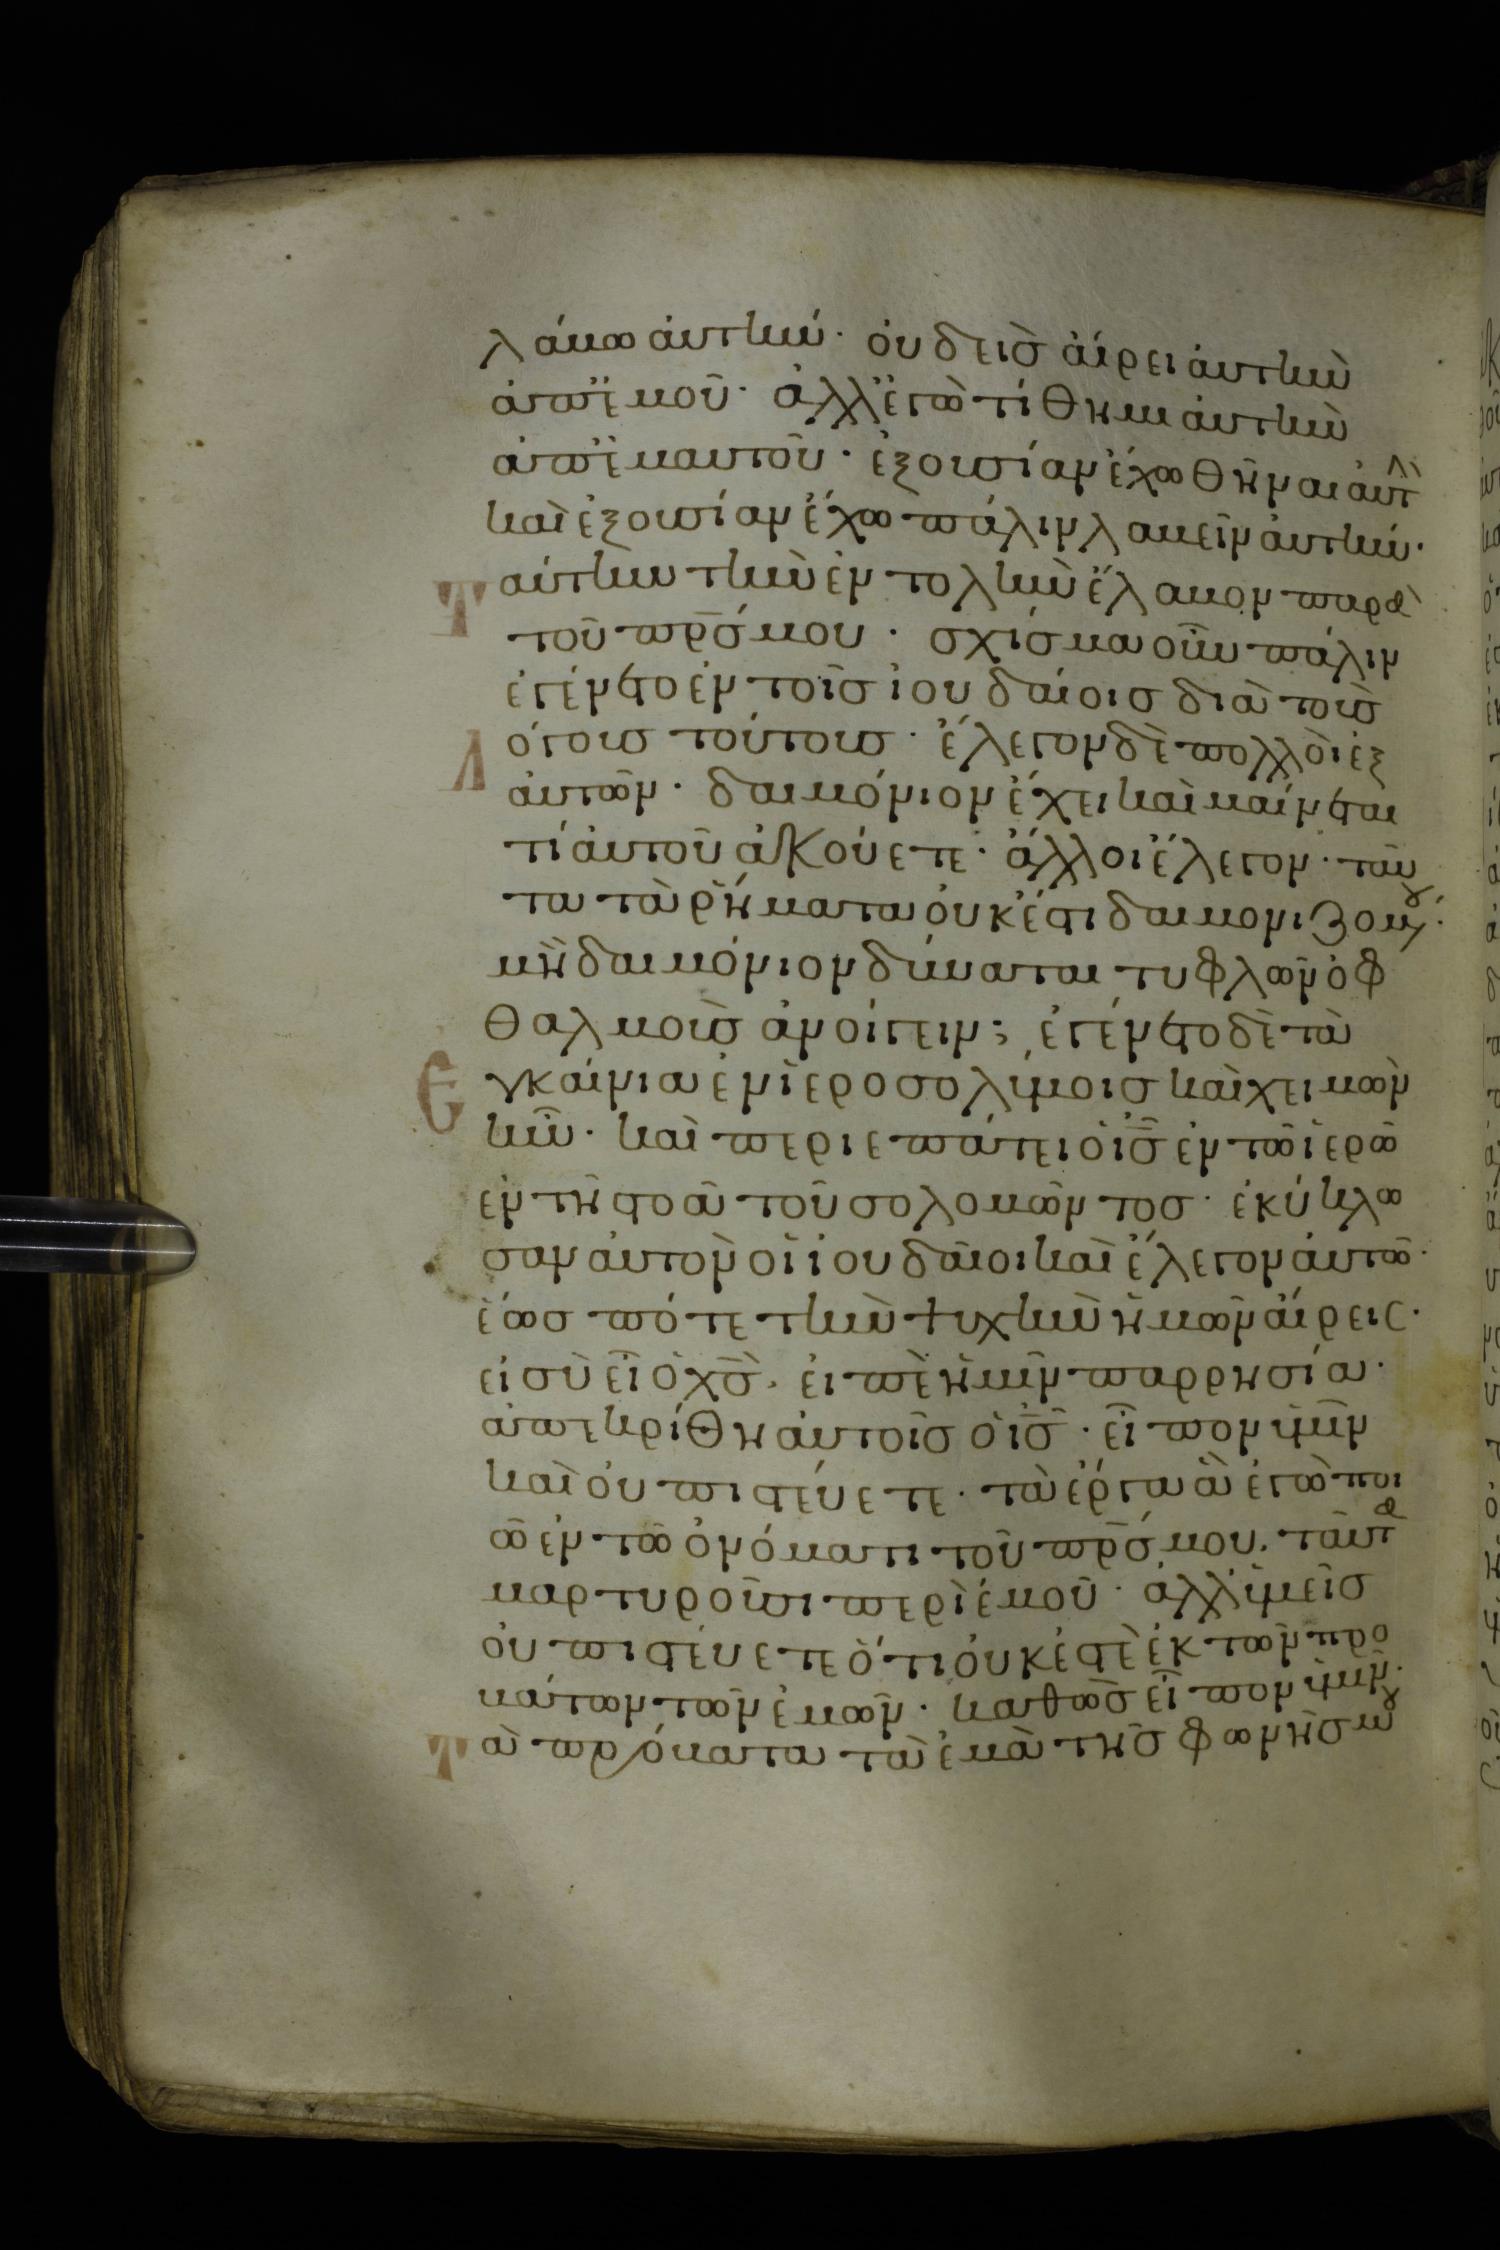 λάβω αὐτήν· οὐδεὶσ αἴρει αὐτὴν
ἀπ' ἐμοῦ· ἀλλ' ἐγὼ τίθημι αὐτὴν
ἀπ' ἐμαυτοῦ· ἐξουσίαν ἔχω θῆναι αὐτ(ὴν)
καὶ ἐξουσίαν ἔχω πάλιν λαβεῖν αὐτήν·
Ταύτην τὴν ἐντολὴν ἔλαβον παρὰ
τοῦ πρ̅σ μου· σχίσμα οὖν πάλιν
ἐγένετο ἐν τοῖσ ἰουδαίοισ διὰ τοὺσ
λόγουσ τούτουσ· ἔλεγον δὲ πολλοὶ ἐξ
αὐτῶν· δαιμόνιον ἔχει καὶ μαίνεται
τί αὐτοῦ ἀκούετε· ἄλλοι ἔλεγον· ταῦ
τα τὰ ῥήματα οὐκ ἔστι δαιμονιζομ(ένου)·
μὴ δαιμόνιον δύναται τυφλῶν ὀφ
θαλμοὺσ ἀνοίγειν; ἐγένετο δὲ τὰ
Εγκαίνια ἐν ἱεροσολύμοισ καὶ χειμὼν
ἦν· καὶ περιεπάτει ὁ ι̅σ̅ ἐν τῶ ἱερῶ
ἐν τῆ στοᾶ τοῦ σολομῶντοσ· ἐκύκλω
σαν αὐτὸν οἱ ἰουδαῖοι καὶ ἔλεγον αὐτῶ·
ἕωσ πότε τὴν ψυχὴν ἡμῶν αἴρεις·
εἰ σὺ εἶ ὁ χ̅σ̅· εἰπὲ ἡμῖν παρρησία·
ἀπεκρίθη αὐτοῖσ ὁ ι̅σ̅· εἶπον ὑμῖν
καὶ οὐ πιστεύετε· τὰ ἔργα ἃ ἐγὼ ποι
ῶ ἐν τῶ ὀνόματι τοῦ πρ̅σ μου, ταῦτα
μαρτυροῦσι περὶ ἐμοῦ· ἀλλ' ὑμεῖσ
οὐ πιστεύετε ὅτι οὐκ ἐστὲ ἐκ τῶν προ
βάτων τῶν ἐμῶν· καθὼσ εἶπον ὑμῖν·
Τὰ πρόβατα τὰ ἐμὰ τῆσ φωνῆσ μου